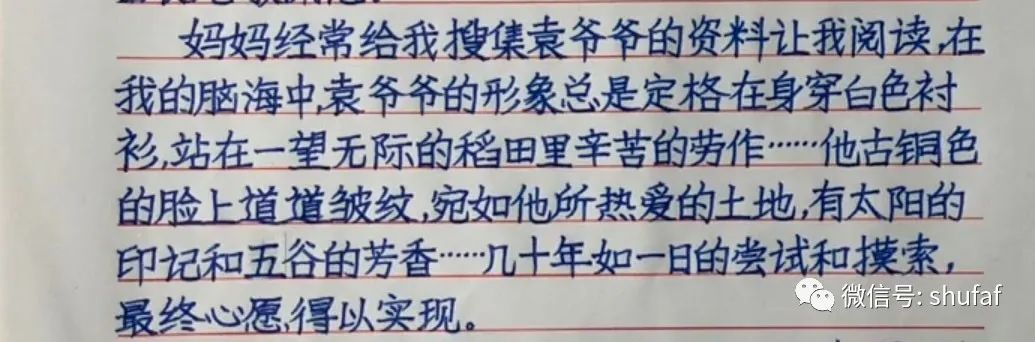 妈妈经常给我搜集袁爷爷的资料让我阅读,在
我的脑海中,袁爷爷的形象总是定格在身穿白色衬
衫,站在一望无际的稻田里辛苦的劳作……他古铜色
的脸上道道皱纹,宛如他所热爱的土地,有太阳的
印记和五谷的芳香……几十年如一日的尝试和摸索,
最终心愿得以实现。
微信号: shufaf